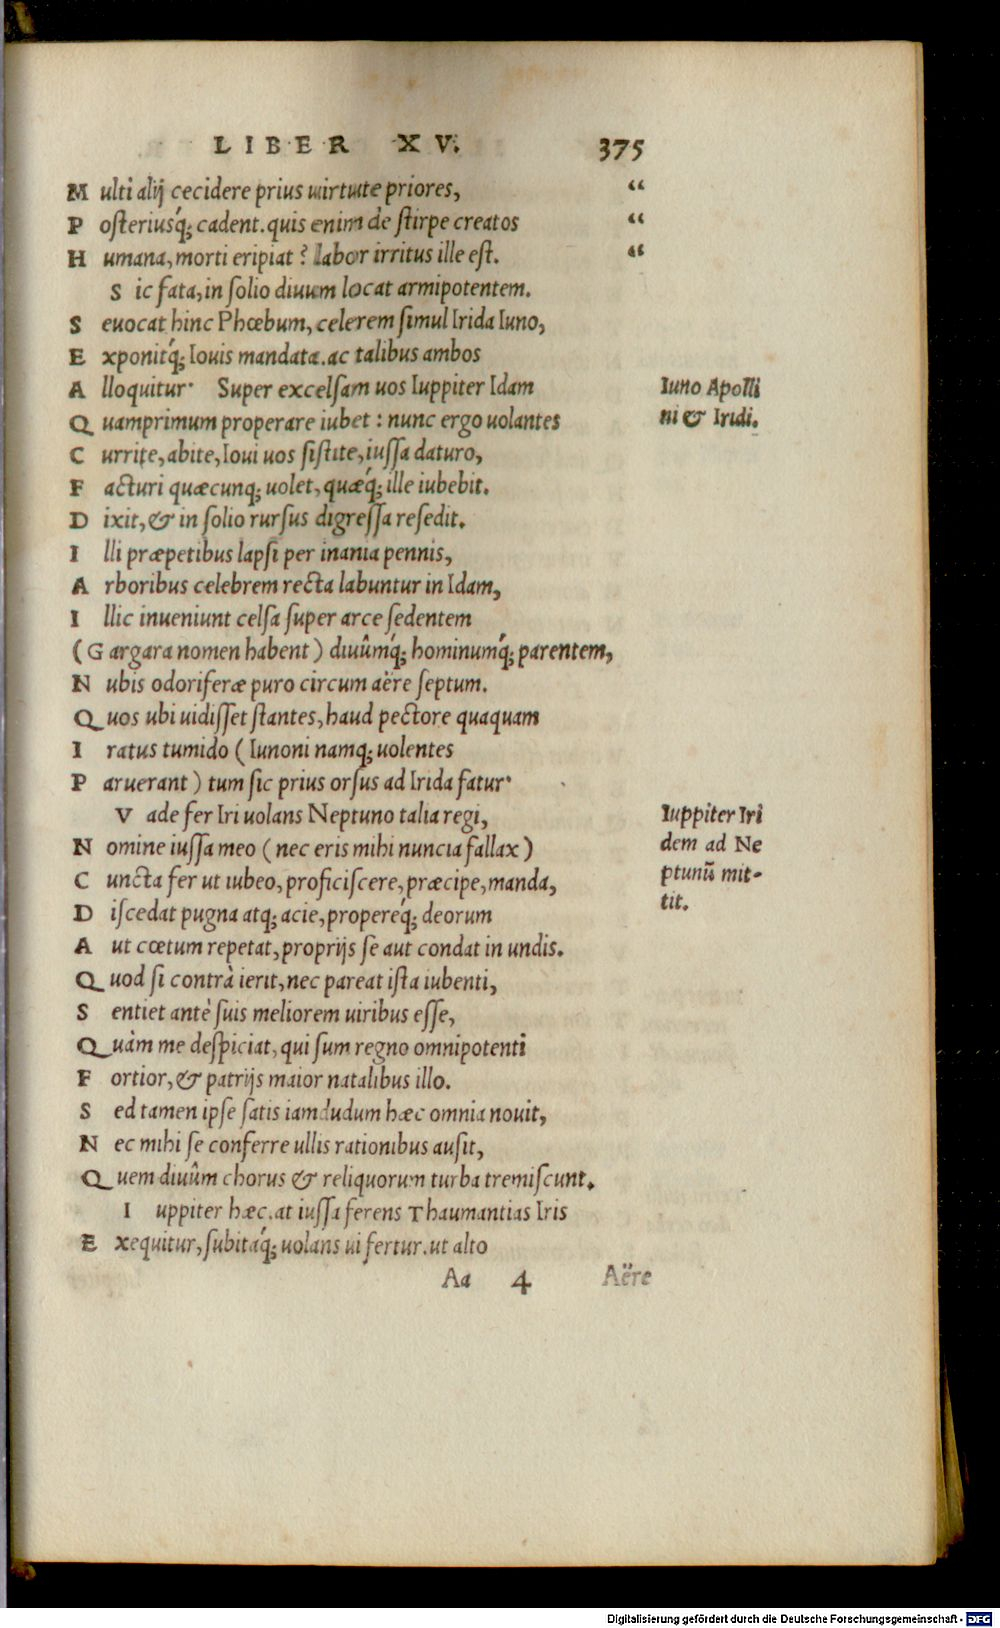 LIBER XV. 375
M ulti alij cecidere prius uirtute priores, “
P osteriusq́; cadent. quis enim de stirpe creatos “
H umana, morti eripiat? labor irritus ille est. “
S ic fata, in solio diuum locat armipotentem.
S euocat hinc Phœbum, celerem simul Irida Iuno,
E xponitq́; Iouis mandata. ac talibus ambos
A lloquitur· Super excelsam uos Iuppiter Idam
Iuno Apolli
Q uamprimum properare iubet: nunc ergo uolantes
ni & Iridi.
C urrite, abite, Ioui uos sistite, iussa daturo,
F acturi quæcunq; uolet, quæq́; ille iubebit.
D ixit, & in solio rursus digressa resedit.
I lli præpetibus lapsi per inania pennis,
A rboribus celebrem recta labuntur in Idam,
I llic inueniunt celsa super arce sedentem
(G argara nomen habent) diuûmq́; hominumq́; parentem,
N ubis odoriferæ puro circum aëre septum.
Q uos ubi uidisset stantes, haud pectore quaquam
I ratus tumido (Iunoni namq; uolentes
P aruerant) tum sic prius orsus ad Irida fatur·
V ade fer Iri uolans Neptuno talia regi,
Iuppiter Iri
N omine iussa meo (nec eris mihi nuncia fallax)
dem ad Ne
C uncta fer ut iubeo, proficiscere, præcipe, manda,
ptunū mit-
D iscedat pugna atq; acie, propereq́; deorum
tit.
A ut cœtum repetat, proprijs se aut condat in undis.
Q uod si contrà ierit, nec pareat ista iubenti,
S entiet antè suis meliorem uiribus esse,
Q uàm me despiciat, qui sum regno omnipotenti
F ortior, & patrijs maior natalibus illo.
S ed tamen ipse satis iamdudum hæc omnia nouit,
N ec mihi se conferre ullis rationibus ausit,
Q uem diuûm chorus & reliquorum turba tremiscunt.
I uppiter hæc. at iussa ferens Thaumantias Iris
E xequitur, subitaq́; uolans ui fertur. ut alto
Aa 4 Aëre
Digitalisierung gefördert durch die Deutsche Forschungsgemeinschaft - DFG